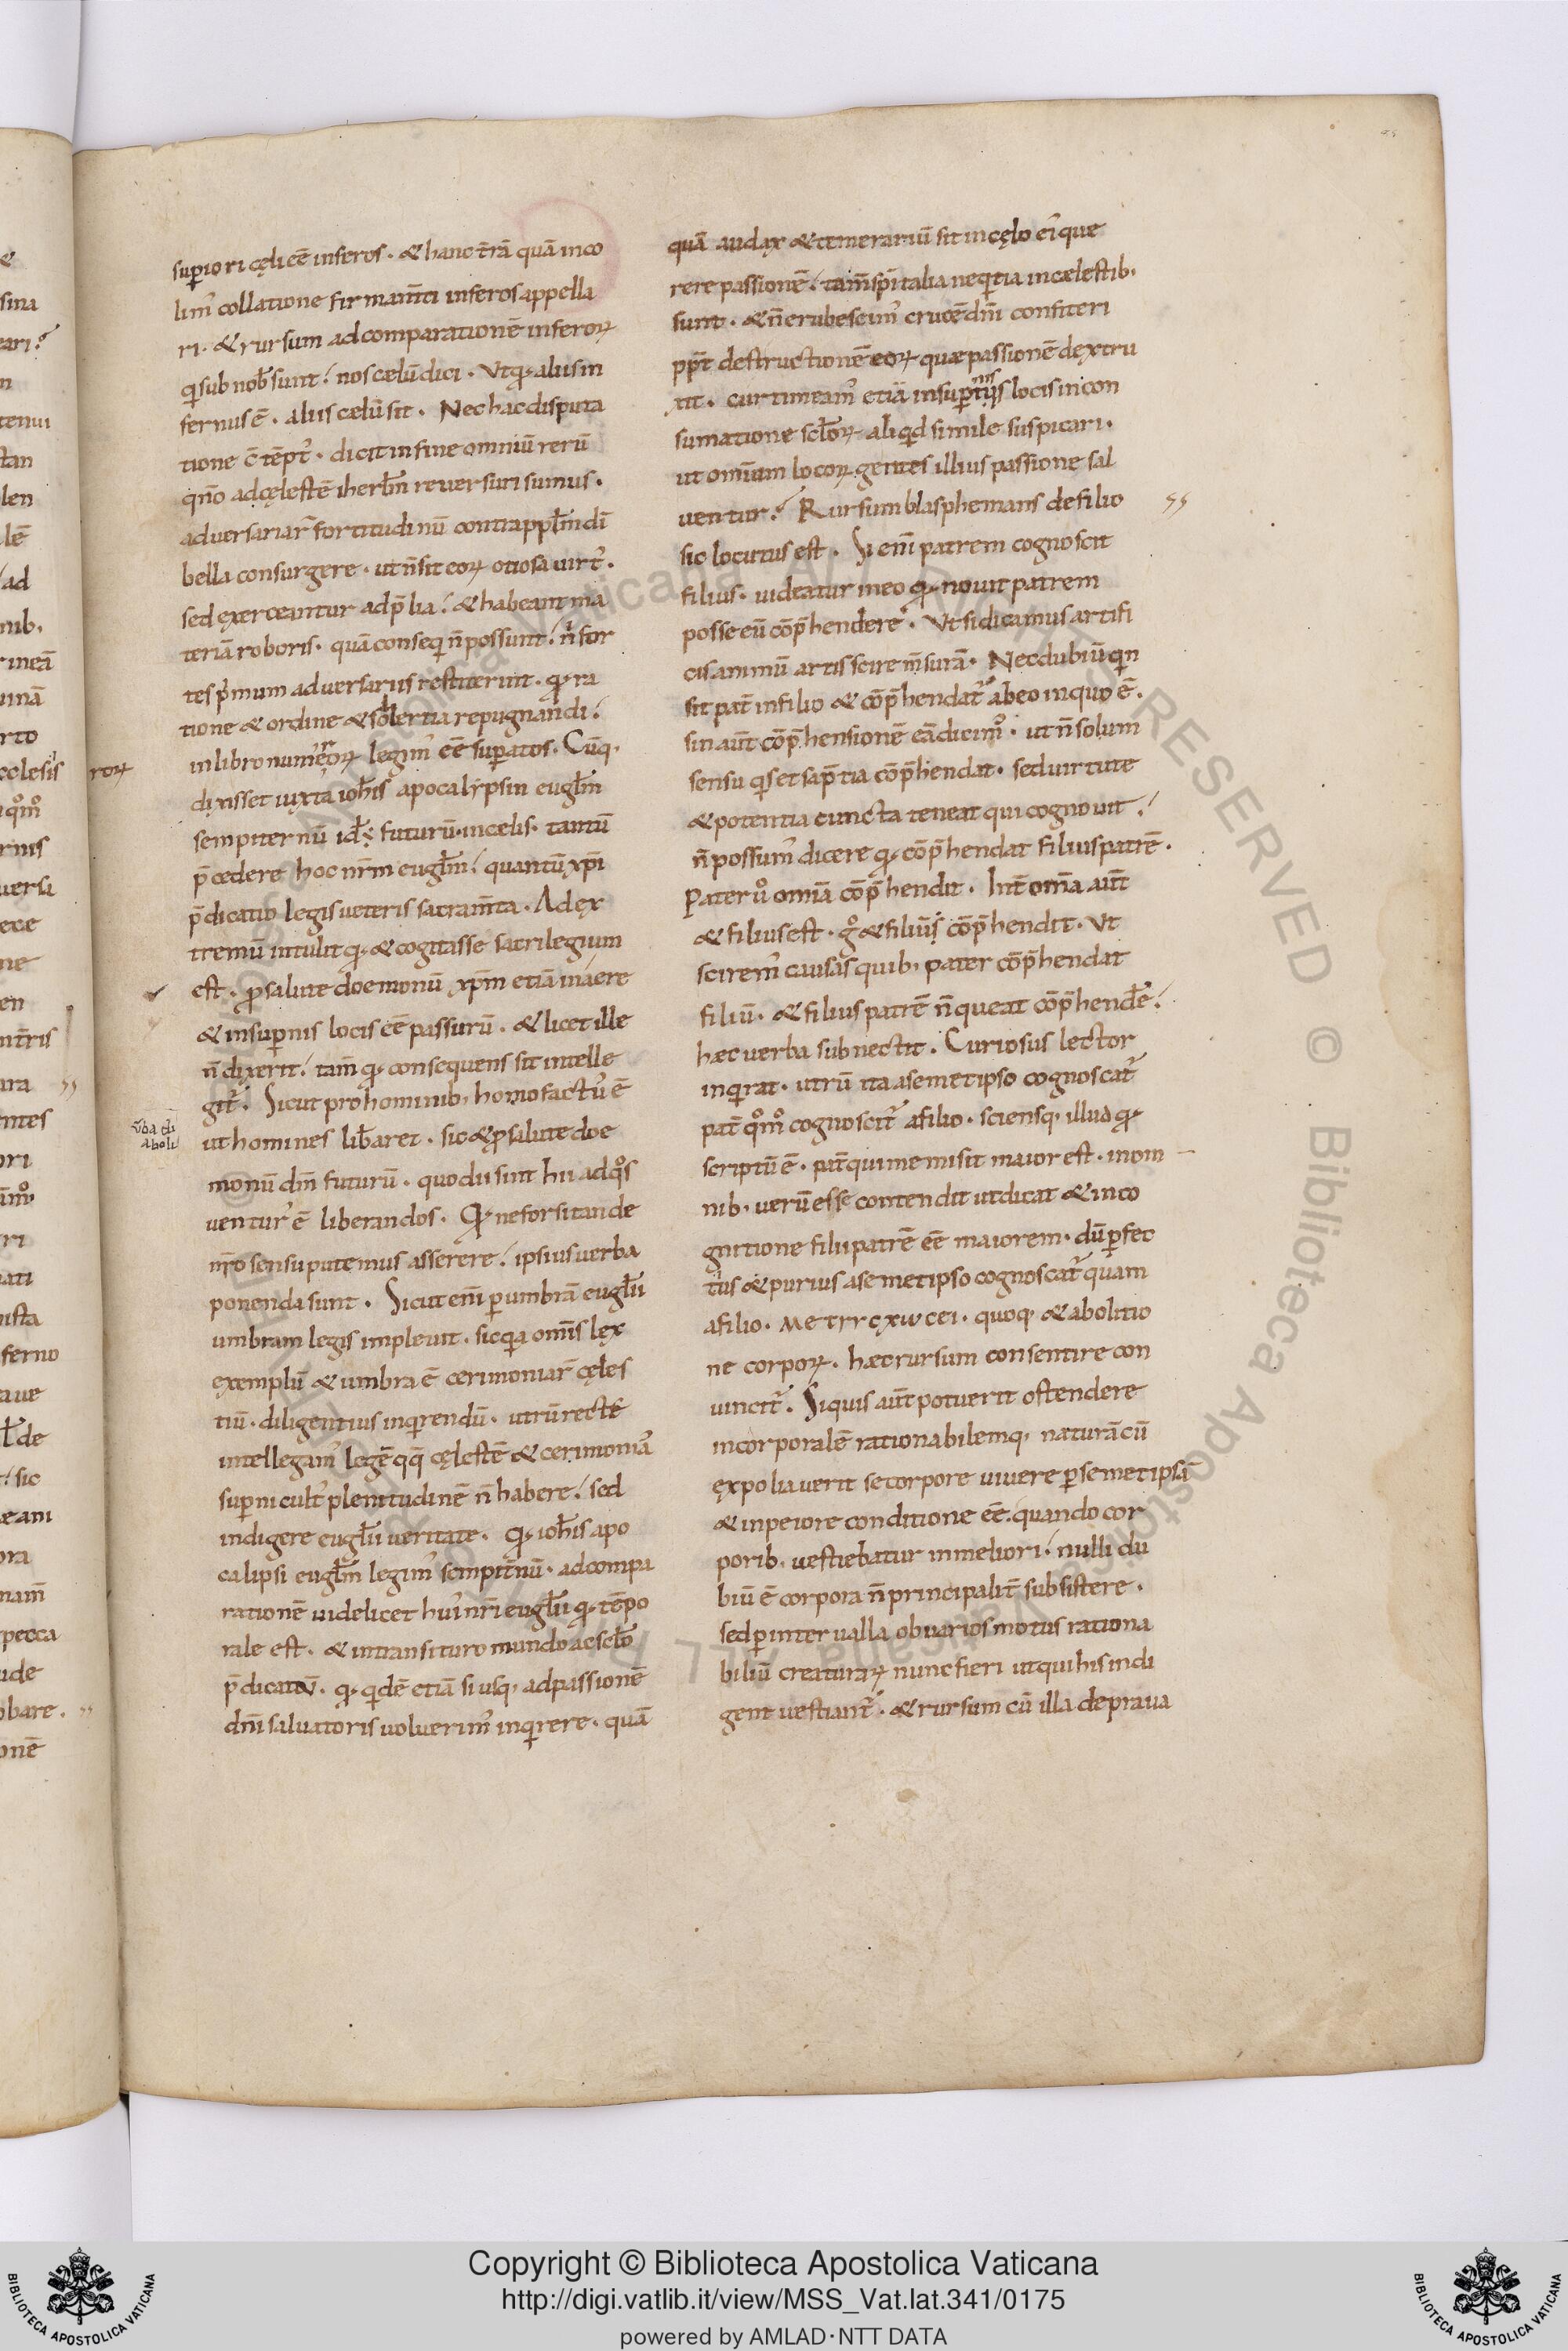 superiori cęli eē inferos · & hanc t̄rā quā inco
lim᾽ collatione firmam̄ti inferos appella
ri · & rursum ad comparationē inferoꝝ
qui sub nob̄ sunt / nos cælū dici · Vt qđ aliis in
fernus ē · aliis cælū sit · Nec hac disputa
tione c̄tēpt᾽ · dicit in fine omniū rerū
qn̄o ad cęlestē iherl̄m reversuri sumus ·
adversariar̄ fortitudinū contra ppl̄m dī
bella consurgere · ut n̄ sit eoꝝ otiosa virt᾽ ·
sed exerceantur ad p̄lia / & habeant ma
teriā roboris · quā conseqi n̄ possunt / nⁱ for
tes pⁱmum adversariis restiterint · qđ ra
tione & ordine & sollertia repugnandi /
in libro numeroꝝ legim᾽ eē superatos · Cūq·
dixisset iuxta ioh̄is apocalipsin eugl̄m
sempiternū id ē futurū in celis · tantū
p̄cedere hoc nr̄m eugl̄m / quantū xp̄i
p̄dicatio legis veteris sacram̄ta · Ad ex
tremū intulit qđ & cogitasse sacrilegium
est · pro salute doemonū xp̄m etiā in aere
& in supernis locis eē passurū · & licet ille
n̄ dixerit / tam̄ qđ consequens sit intelle
git᾽ · Sicut pro hominib; homo factu᾽ ē
ut homines lib̄aret · sic & pro salute doe
monū dm̄ futurū · quo dii sint hii ad qͦs
ventur᾽ ē liberandos · Qđ ne forsitan de
nr̄o sensu putemus asserere / ipsius verba
ponenda sunt · Sicut eni᾽ per umbrā eugl̄ii
umbram legis implevit · sic qia omīs lex
exemplū & umbra ē cerimoniar̄ cęles
tiū · diligentius inqirendū · utrū recte
intellegam᾽ legē qq̄ cęlestē & cerimonia᾽
superni cult᾽ plenitudinē n̄ habere / sed
indigere eugl̄ii veritate · Qđ ioh̄is apo
calipsi eugl̄m legim᾽ sempit̄nū · ad compa
rationē videlicet hui᾽ nr̄i eugl̄ii qđ tēpo
rale est · & in transituro mundo ac scl̄o
p̄dicatū · qđ qidē etiā si usq; ad passionē
dn̄i salvatoris voluerim᾽ inqirere · quā
v̄ba di
aboli
quā audax & temerariū sit in cęlo ei᾽ que
rere passionē / tam̄ spi᾽talia neqitia in cælestib;
sunt · & n̄ erubescim᾽ crucē dn̄i confiteri
ppt̄ destructionē eoꝝ quæ passione dextru
xit · cur timeam᾽ etiā in supernis locis in con
sumatione scl̄oꝝ aliqid simile suspicari ·
ut omnium locoꝝ gentes illius passione sal
ventur? Rursum blasphemans de filio
sic locutus est · Si eni᾽ patrem cognoscit
filius · videatur in eo qđ novit patrem
posse eū cōp̄hendere · Vt si dicamus artifi
cis animū artis scire m̄surā · Nec dubiū qin
sit pat̄ in filio & cōp̄hendat᾽ ab eo in quo ē ·
sin aut̄ cōp̄hensionē eā dicim᾽ · ut n̄ solum
sensu qis et sap̄tia cōp̄hendat · sed virtute
& potentia cuncta teneat qui cognovit /
n̄ possum᾽ dicere qđ cōp̄hendat filius patrē ·
Pater uͦ omīa cōp̄hendit · Int̄ omn̄a aut̄
& filius est · gͦ & filiūs cōp̄hendit · Vt
scirem᾽ causas quib; pater cōp̄hendat
filiū · & filius patrē n̄ queat cōp̄hende᾽ /
hæc verba subnectit · Curiosus lector
inqirat · utrū ita a semetipso cognoscat᾽
pat̄ qͦmͦ cognoscit᾽ a filio · sciensq; illud qđ
scriptū ē · pat̄ qui me misit maior est · in om
nib; verū esse contendit ut dicat & in co
gnitione filii patrē eē maiorem · dū perfec
tius & purius a semetipso cognoscat᾽ quam
a filio · ΜΕΤΕΜ quoq; & abolitio
ne corpoꝝ · hæc rursum consentire con
vincit᾽ · Si quis aut̄ potuerit ostendere
incorporalē rationabilemq; naturā cū
expoliaverit se corpore vivere per semetipsā
& in peiore conditione eē · quando cor
porib; vestiebatur in meliori / nulli du
biū ē corpora n̄ principalit̄ subsistere ·
sed per intervalla ob varios motus rationa
biliū creaturaꝝ nunc fieri ut qui his indi
gent vestiant᾽ · & rursum cū illa deprava
Copyright © Biblioteca Apostolica Vaticana
http://digi.vatlib.it/view/MSS_Vat.lat.341/0175
powered by AMLAD·NTT DATA